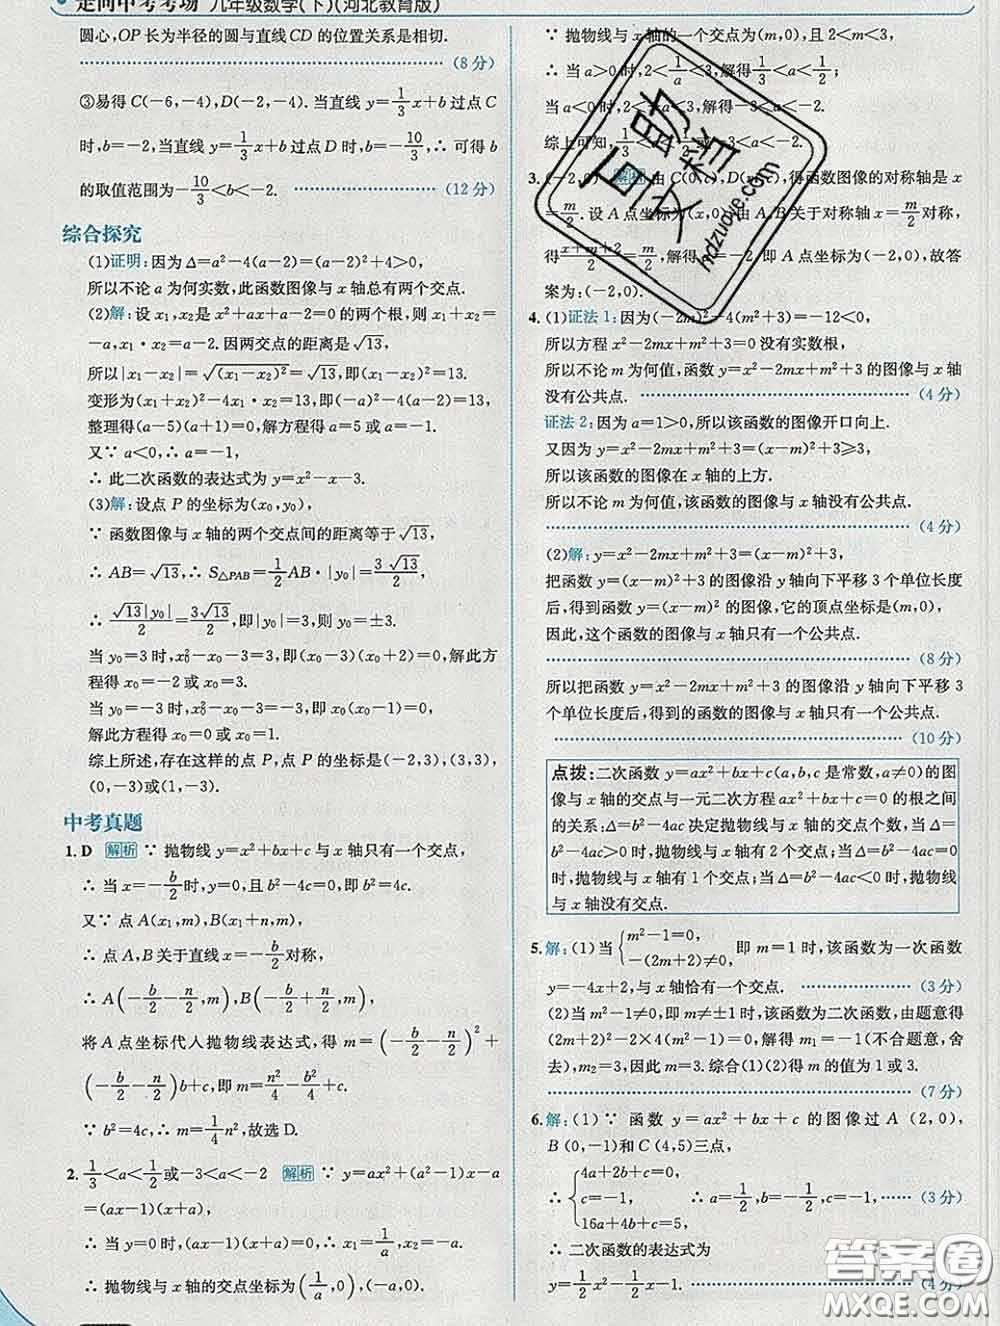 走向中考考场 九年级数学(下)(河北教育版)
圆心,OP长为半径的圆与直线CD的位置关系是相切.
(8分)
③易得C(-6,-4),D(-2,-4).当直线y=1/3x+b过点C
时,b=-2,当直线y=1/3x+b过点D时,b=-10/3,∴可得b
的取值范围为-10/3<b<-2. (12分)
综合探究
(1)证明:因为Δ=a²-4(a-2)=(a-2)²+4>0,
所以不论a为何实数,此函数图像与x轴总有两个交点.
(2)解:设x₁,x₂是x²+ax+a-2=0的两个根,则x₁+x₂=
-a,x₁·x₂=a-2.因两交点的距离是√13,
所以|x₁-x₂|=√(x₁-x₂)²=√13,即(x₁-x₂)²=13.
变形为(x₁+x₂)²-4x₁·x₂=13,即(-a)²-4(a-2)=13,
整理得(a-5)(a+1)=0,解方程得a=5或a=-1.
又∵a<0,∴a=-1,
∴此二次函数的表达式为y=x²-x-3.
(3)解:设点P的坐标为(x₀,y₀),
∵函数图像与x轴的两个交点间的距离等于√13,
∴AB=√13,∴S△PAB=1/2AB·|y₀|=3√13/2,
∴√13|y₀|/2=3√13/2,即|y₀|=3,则y₀=±3.
当y₀=3时,x₀²-x₀-3=3,即(x₀-3)(x₀+2)=0,解此方
程得x₀=-2或x₀=3.
当y₀=-3时,x₀²-x₀-3=-3,即x₀(x₀-1)=0,
解此方程得x₀=0或x₀=1.
综上所述,存在这样的点P,点P的坐标是(-2,3),(3,3),
(0,-3)或(1,-3).
中考真题
1.D 解析 ∵抛物线y=x²+bx+c与x轴只有一个交点,
∴当x=-b/2时,y=0,且b²-4c=0,即b²=4c.
又∵点A(x₁,m),B(x₁+n,m),
∴点A,B关于直线x=-b/2对称,
∴A(-b/2-n/2,m),B(-b/2+n/2,m),
将A点坐标代入抛物线表达式,得m=(-b/2-n/2)²+
(-b/2-n/2)b+c,即m=n²/4-b²/4+c.
∵b²=4c,∴m=1/4n²,故选D.
2.1/3<a<1/2或-3<a<-2 解析 ∵y=ax²+(a²-1)x-a
=(ax-1)(x+a),
∴当y=0时,(ax-1)(x+a)=0,∴x₁=1/a,x₂=-a.
∴抛物线与x轴的交点坐标为(1/a,0),(-a,0).
∵抛物线与x轴的一个交点为(m,0),且2<m<3,
∴当a>0时,2<1/a<3,解得1/3<a<1/2;
当a<0时,2<-a<3,解得-3<a<-2.
综上可知,1/3<a<1/2或-3<a<-2.
3.(-2,0) 解析 由C(0,c),D(m,c),得函数图像的对称轴是x
=m/2.设A点坐标为(x,0),由A,B关于对称轴x=m/2对称,
得(x+m+2)/2=m/2,解得x=-2,即A点坐标为(-2,0),故答
案为:(-2,0).
4.(1)证法1:因为(-2m)²-4(m²+3)=-12<0,
所以方程x²-2mx+m²+3=0没有实数根,
所以不论m为何值,函数y=x²-2mx+m²+3的图像与x轴
没有公共点. (4分)
证法2:因为a=1>0,所以该函数的图像开口向上.
又因为y=x²-2mx+m²+3=(x-m)²+3≥3,
所以该函数的图像在x轴的上方.
所以不论m为何值,该函数的图像与x轴没有公共点.
(4分)
(2)解:y=x²-2mx+m²+3=(x-m)²+3,
把函数y=(x-m)²+3的图像沿y轴向下平移3个单位长度
后,得到函数y=(x-m)²的图像,它的顶点坐标是(m,0),
因此,这个函数的图像与x轴只有一个公共点.
(8分)
所以把函数y=x²-2mx+m²+3的图像沿y轴向下平移3
个单位长度后,得到的函数的图像与x轴只有一个公共点.
(10分)
点拨:二次函数y=ax²+bx+c(a,b,c是常数,a≠0)的图
像与x轴的交点与一元二次方程ax²+bx+c=0的根之间
的关系:Δ=b²-4ac决定抛物线与x轴的交点个数,当Δ=
b²-4ac>0时,抛物线与x轴有2个交点;当Δ=b²-4ac=0时,
抛物线与x轴有1个交点;当Δ=b²-4ac<0时,抛物线
与x轴没有交点.
5.解:(1)当{m²-1=0,-(2m+2)≠0,即m=1时,该函数为一次函数
y=-4x+2,与x轴恰有一个交点. (3分)
(2)当m²-1≠0,即m≠±1时,该函数为二次函数,由题意得
(2m+2)²-2×4(m²-1)=0,解得m₁=-1(不合题意,舍
去),m₂=3.综合(1)(2)可知m的值为1或3.
(7分)
6.解:(1)∵函数y=ax²+bx+c的图像过A(2,0),
B(0,-1)和C(4,5)三点,
∴{4a+2b+c=0,c=-1,16a+4b+c=5,∴a=1/2,b=-1/2,c=-1, (3分)
∴二次函数的表达式为
y=1/2x²-1/2x-1. (4分)
百助文档
hdzuoye.com
答案圈
MXQE.COM